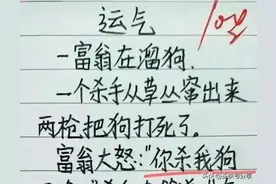 运气
一富翁在溜狗.
一个杀手从草丛窜出来
两枪把狗打死了.
富翁大怒:"你杀我狗